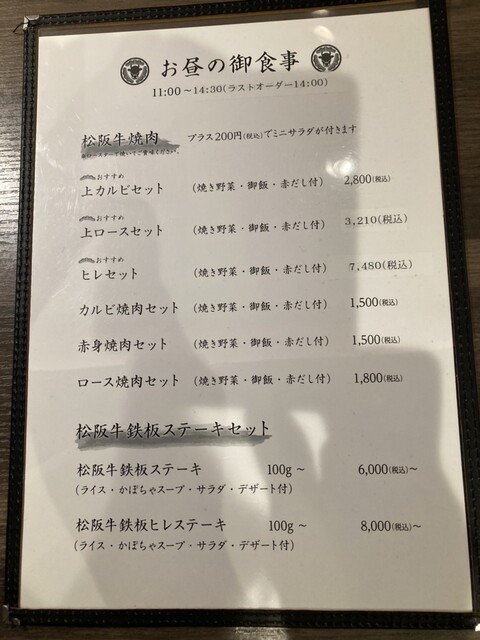 お昼の御食事
11:00～14:30(ラストオーダー14:00)
松阪牛焼肉 プラス200円(税込)でミニサラダが付きます
※ロースターで焼いてご賞味ください。
おすすめ
上カルビセット (焼き野菜・御飯・赤だし付) 2,800(税込)
おすすめ
上ロースセット (焼き野菜・御飯・赤だし付) 3,210(税込)
おすすめ
ヒレセット (焼き野菜・御飯・赤だし付) 7,480(税込)
カルビ焼肉セット (焼き野菜・御飯・赤だし付) 1,500(税込)
赤身焼肉セット (焼き野菜・御飯・赤だし付) 1,500(税込)
ロース焼肉セット (焼き野菜・御飯・赤だし付) 1,800(税込)
松阪牛鉄板ステーキセット
松阪牛鉄板ステーキ 100g～ 6,000(税込)～
(ライス・かぼちゃスープ・サラダ・デザート付)
松阪牛鉄板ヒレステーキ 100g～ 8,000(税込)～
(ライス・かぼちゃスープ・サラダ・デザート付)